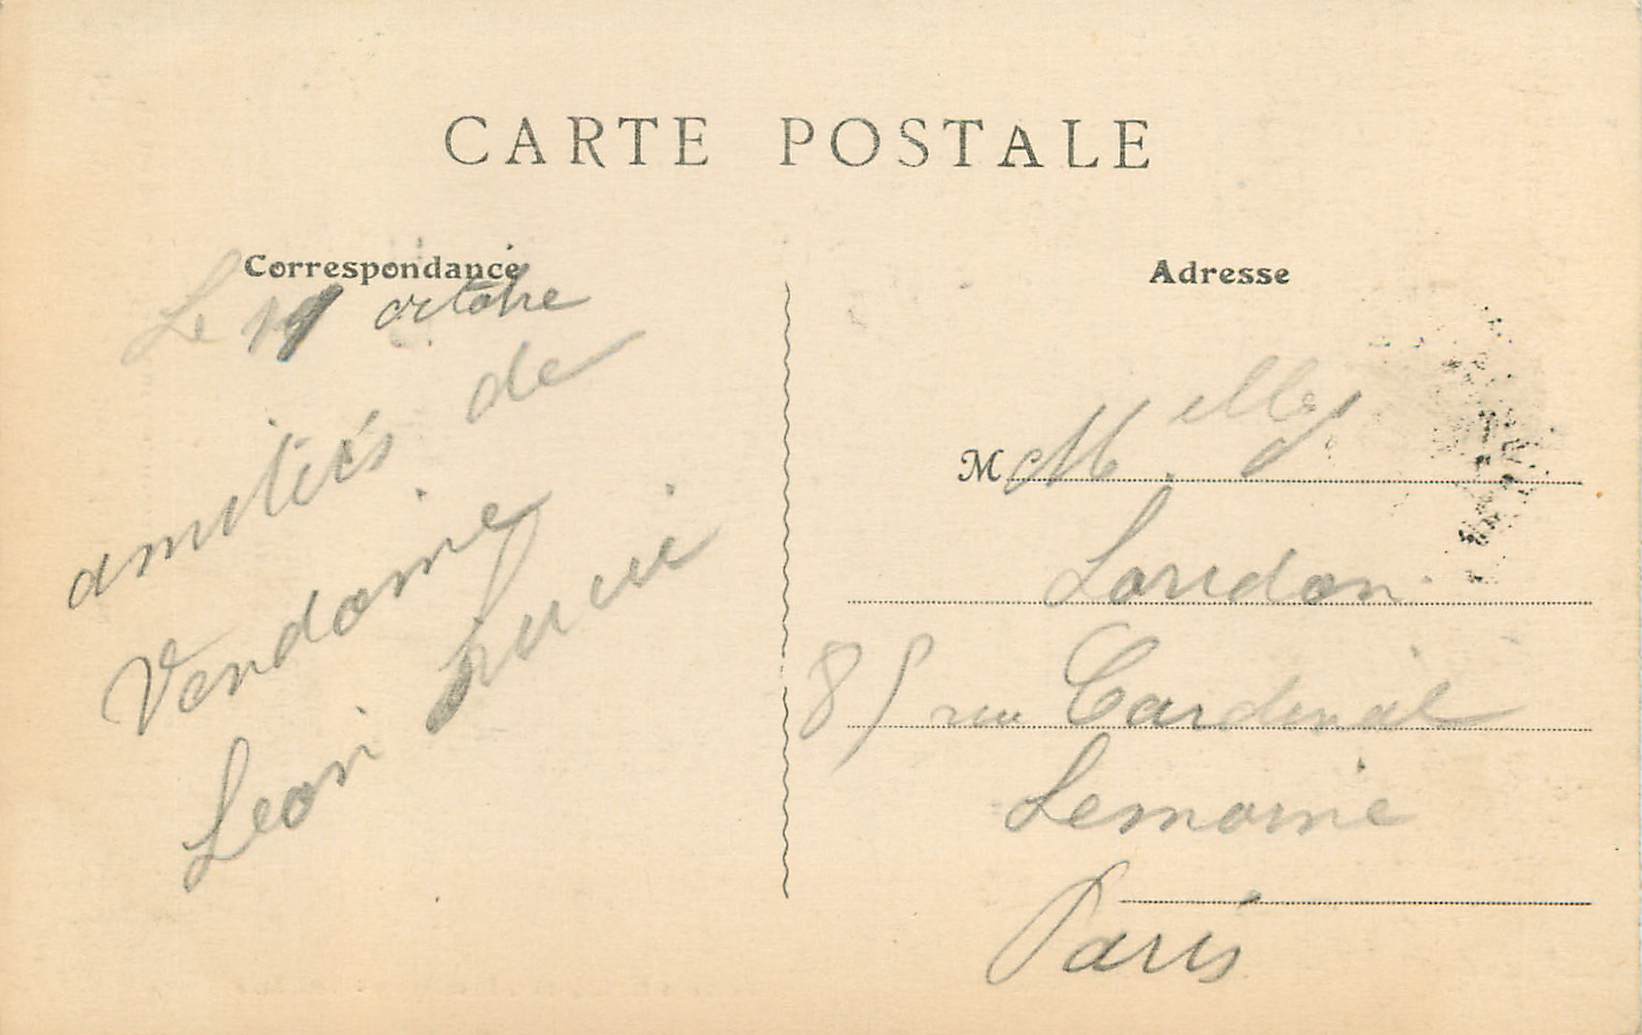 CARTE POSTALE
Correspondance
Le 19 octobre
amitiés de
Vendome
Leon Lucie
Adresse
M Melles
Loridon
85 rue Cardinal
Lemoine
Paris